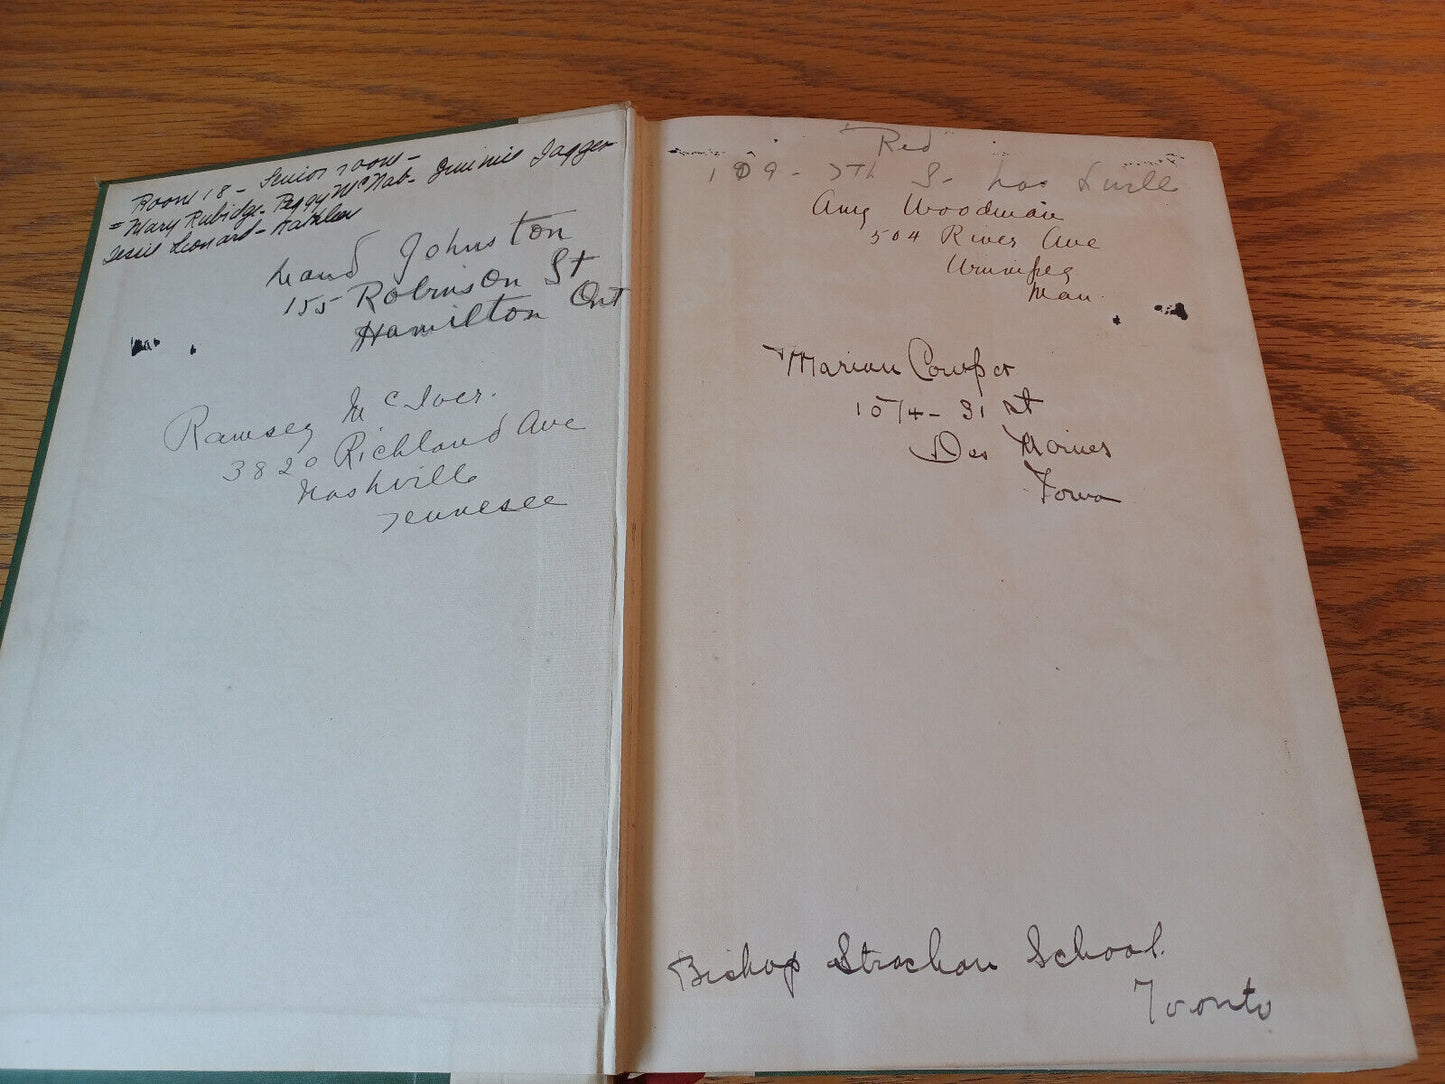 Room 18 - Senior room -
= Mary Rubidge - Peggy McNab - Jimmie Jagger
Jessie Leonard - Kathleen
Maud Johnston
155 Robinson St
Hamilton Ont
Ramsey McIver.
3820 Richland Ave
Nashville
Tennesee
"Red"
109 - 7th S-
Amy Woodman
504 River Ave
Winnipeg
Man.
Marian Cowper
1014 - 31 St
Des Moines
Iowa
Bishop Strachan School.
Toronto